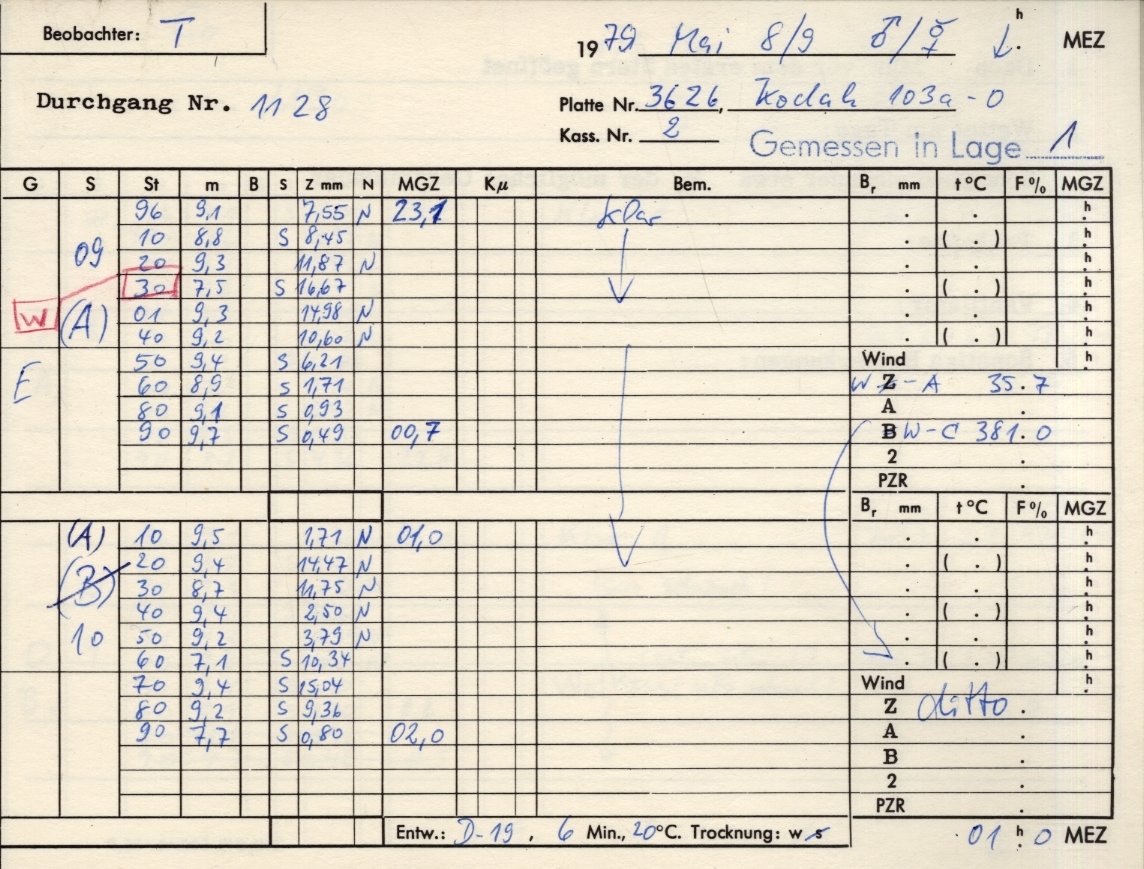 Beobachter: T
1979 Mai 8/9 ♂/☿ ↓ h . MEZ
Durchgang Nr. 1128
Platte Nr. 3626, Kodak 103a-O
Kass. Nr. 2
Gemessen in Lage 1
G S St m B S Z mm N MGZ Kμ Bem. Br mm t °C F% MGZ
96 9,1 7,55 N 23,1 klar . . h
09 10 8,8 S 8,45 . ( . ) h
20 9,3 11,87 N . . h
30 7,5 S 16,67 . ( . ) h
W (A) 01 9,3 14,98 N . . h
40 9,2 10,60 N . ( . ) h
E 50 9,4 S 6,21 Wind h
60 8,9 S 1,71 Z W-A 35.7
80 9,1 S 0,93 A .
90 9,7 S 0,49 00,7 B W-C 381.0
2 .
PZR .
Br mm t °C F% MGZ
(A) 10 9,5 1,71 N 01,0 . . h
(B) 20 9,4 14,47 N . ( . ) h
30 8,7 11,75 N . . h
40 9,4 2,50 N . ( . ) h
10 50 9,2 3,79 N . . h
60 7,1 S 10,34 . ( . ) h
70 9,4 S 15,04 Wind h
80 9,2 S 9,36 Z ditto .
90 7,7 S 0,80 02,0 A .
B .
2 .
PZR .
Entw.: D-19, 6 Min., 20°C. Trocknung: w s
01 h 0 MEZ